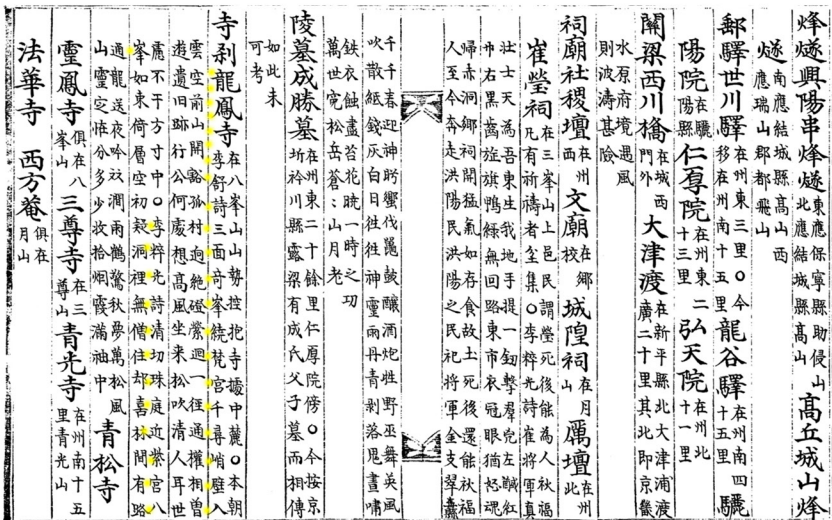 烽燧興陽串烽燧東應保寧縣助侵山北應結城縣高山高丘城山烽
燧南應結城縣高山西應瑞山郡都飛山
郵驛世川驛在州東三里〇今移在州南十五里龍谷驛在州南四十五里驪
陽院在驪陽縣仁厚院在州東二十三里弘天院在州北十一里
關梁西川橋在城西門外大津渡在新平縣北大津浦渡廣二十里其北即京畿
水原府境遇風則波濤甚險
祠廟社稷壇在州西文廟在鄕校城隍祠在月山厲壇在州北
崔瑩祠在三峯山上邑民謂瑩死後能為人秋福凡有祈禱者全集〇李粹光詩崔將軍真
壯士天為吾東生我地手提一釰擊羣兇左馘紅巾右黒齒旌旗鴨綠無回路東市衣冠眼猶怒魂
歸赤洞鄉祠開猛氣如存食故土死後還能秋福人至今奔走洪陽民洪陽之民祀將軍金支翠纛
千千春迎神眄蠁伐鼉鼓釀酒炮牲野巫舞英風吹散紙錢灰白日徃徃神靈雨丹青剥落鬼晝嘯
鐵衣蝕盡苔花曉一時之功萬世寃松岳蒼〻山月老
陵墓成勝墓在州東二十餘里仁厚院傍〇今按京圻衿川縣露梁有成氏父子墓而相傳
如此未可考
寺刹龍鳳寺在八峯山山勢控抱寺據中麓〇本朝李舒詩三面奇峯繞梵宮千尋峭壁入
雲空前山開豁孤村逈絶磴縈迴一徃通權相曽遊遺旧跡行公何處想高風坐来松吹清人耳世
慮不干方寸中〇李粹光詩清切珠庭近紫宮八峯如束倚層空初疑洞裡無僧住却喜林間有路
通龍送夜吟雙澗雨鶴驚秋夢萬松風山靈定怪分多少收拾烟霞滿袖中青松寺
靈鳳寺俱在八峯山三尊寺在三尊山青光寺在州南十五里青光山
法華寺西方菴俱在月山